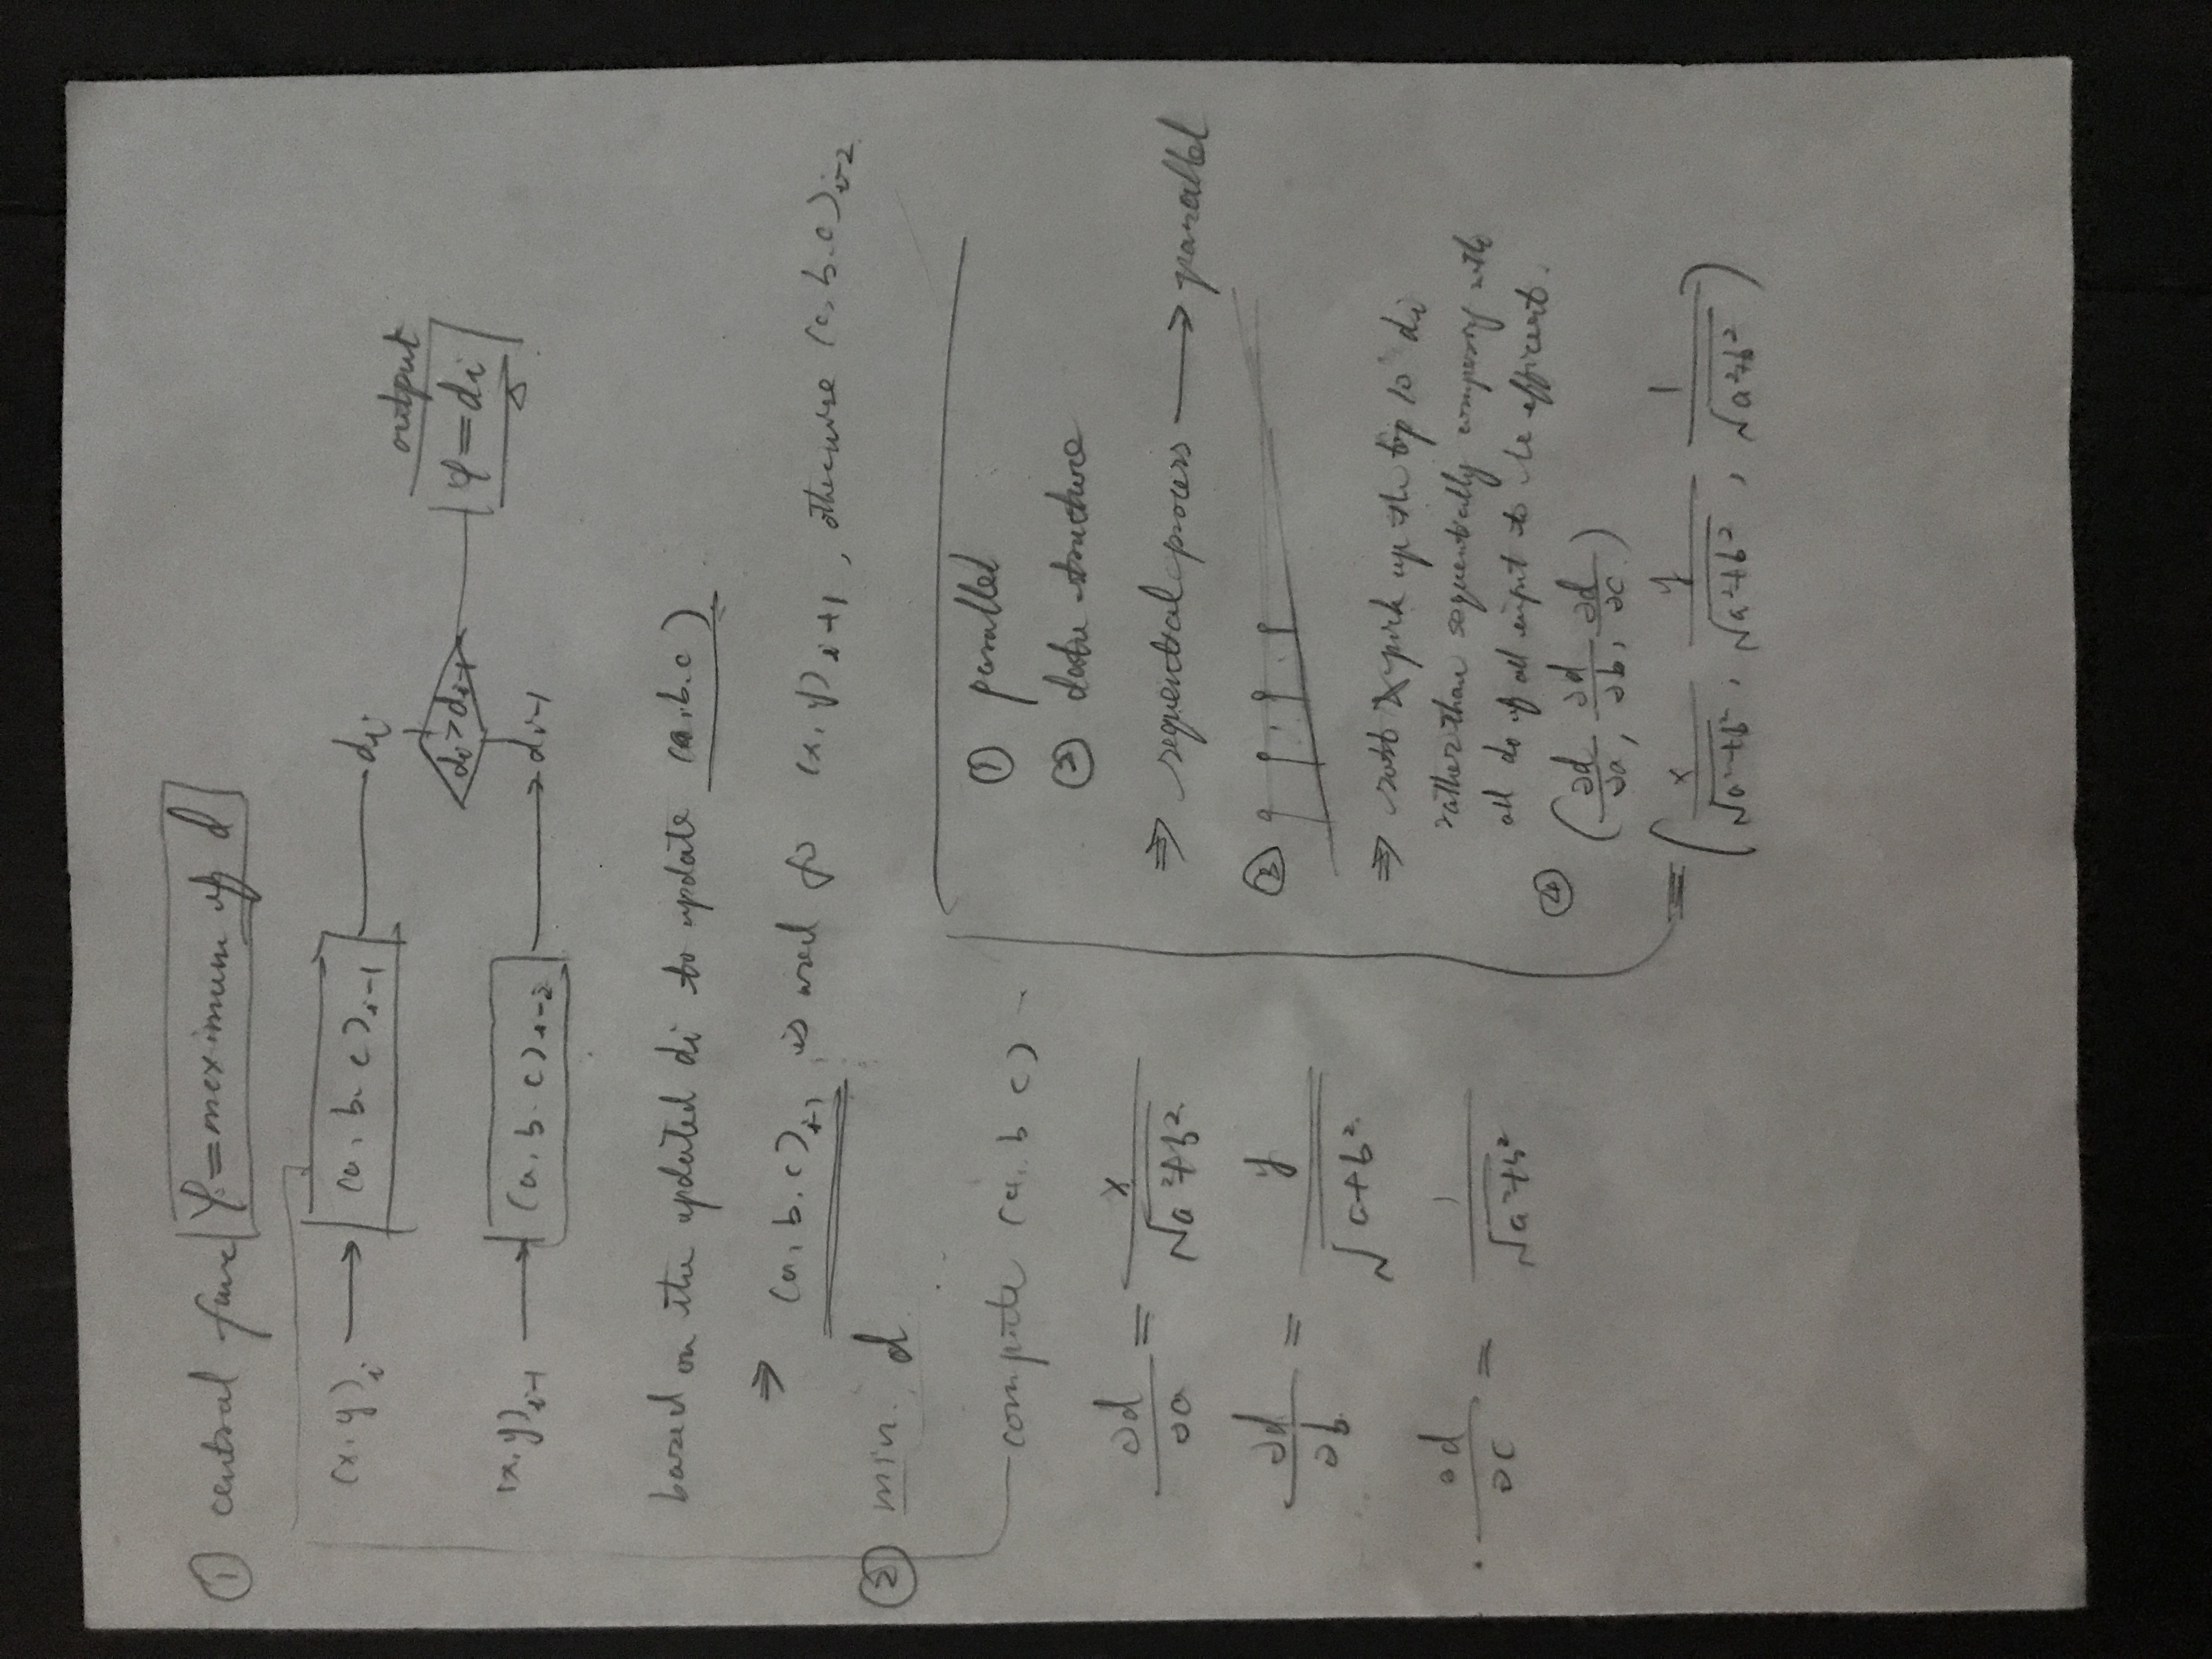 ① central func φ = maximum of d
(x, y)i → (a, b. c)i-1 — di
output
di > di-1 — φ = di
(x, y)i-1 → (a, b. c)i-2 → di-1
based on the updated di to update (a.b.c)
⇒ (a, b. c)i-1 is used fo (x, y)i+1, otherwise (a, b.c)i-2
② min. d
compute (a. b c)
∂d/∂a = x/√(a²+b²)
∂d/∂b = y/√(a+b²)
∂d/∂c = 1/√(a²+b²)
① parallel
② data structure
⇒ sequential process → parallel
③
⇒ sort & pick up the top 10 di
rather than sequentially comparing with
all do of all input to be efficient.
④ (∂d/∂a, ∂d/∂b, ∂d/∂c)
= (x/√(a²+b²), y/√(a²+b²), 1/√(a²+b²))